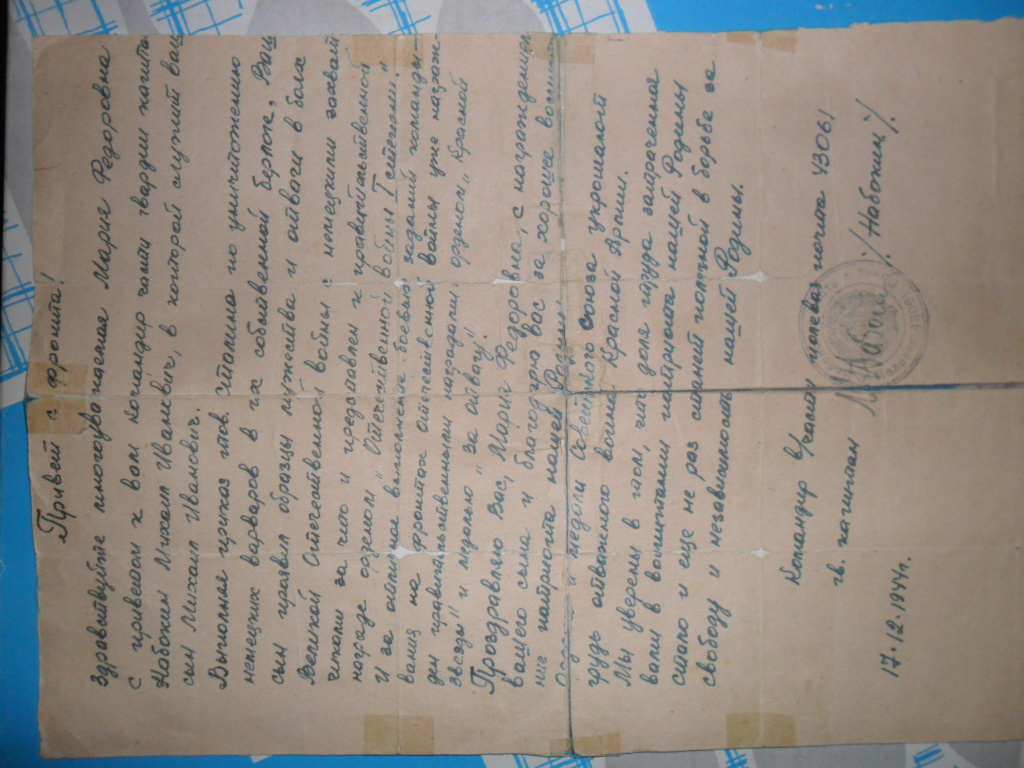 Привет с фронта!
Здравствуйте многоуважаемая Мария Федоровна
с приветом к вам командир части гвардии капитан
Набокин Михаил Иванович, в которой служит ваш
сын Михаил Иванович.
Выполняя приказ тов. Сталина по уничтожению
немецких варваров в их собственной берлоге, Ваш
сын проявил образцы мужества и отваги в боях
Великой Отечественной войны с немецкими захват
чиками за что и представлен к правительственной
награде орденом „Отечественной войны I степени."
И за отличное выполнение боевых заданий командо-
вания на фронтах отечественной войны уже награж-
ден правительственными наградами: орденом „Красной
звезды" и медалью „за отвагу".
Проздравляю Вас, Мария Федоровна, с награждением
вашего сына и благодарю вас за хорошее воспита
ние патриота нашей Родины.
и медали Советского союза украшают
грудь отважного воина Красной Армии.
Мы уверены в том, что
вами в воспитании патриота нашей Родины
и еще не раз станет в борьбе за
свободу и независимость нашей Родины.
Командир в/части полевая почта 43061
гв. капитан Набокин /Набокин/.
17.12.1944г.